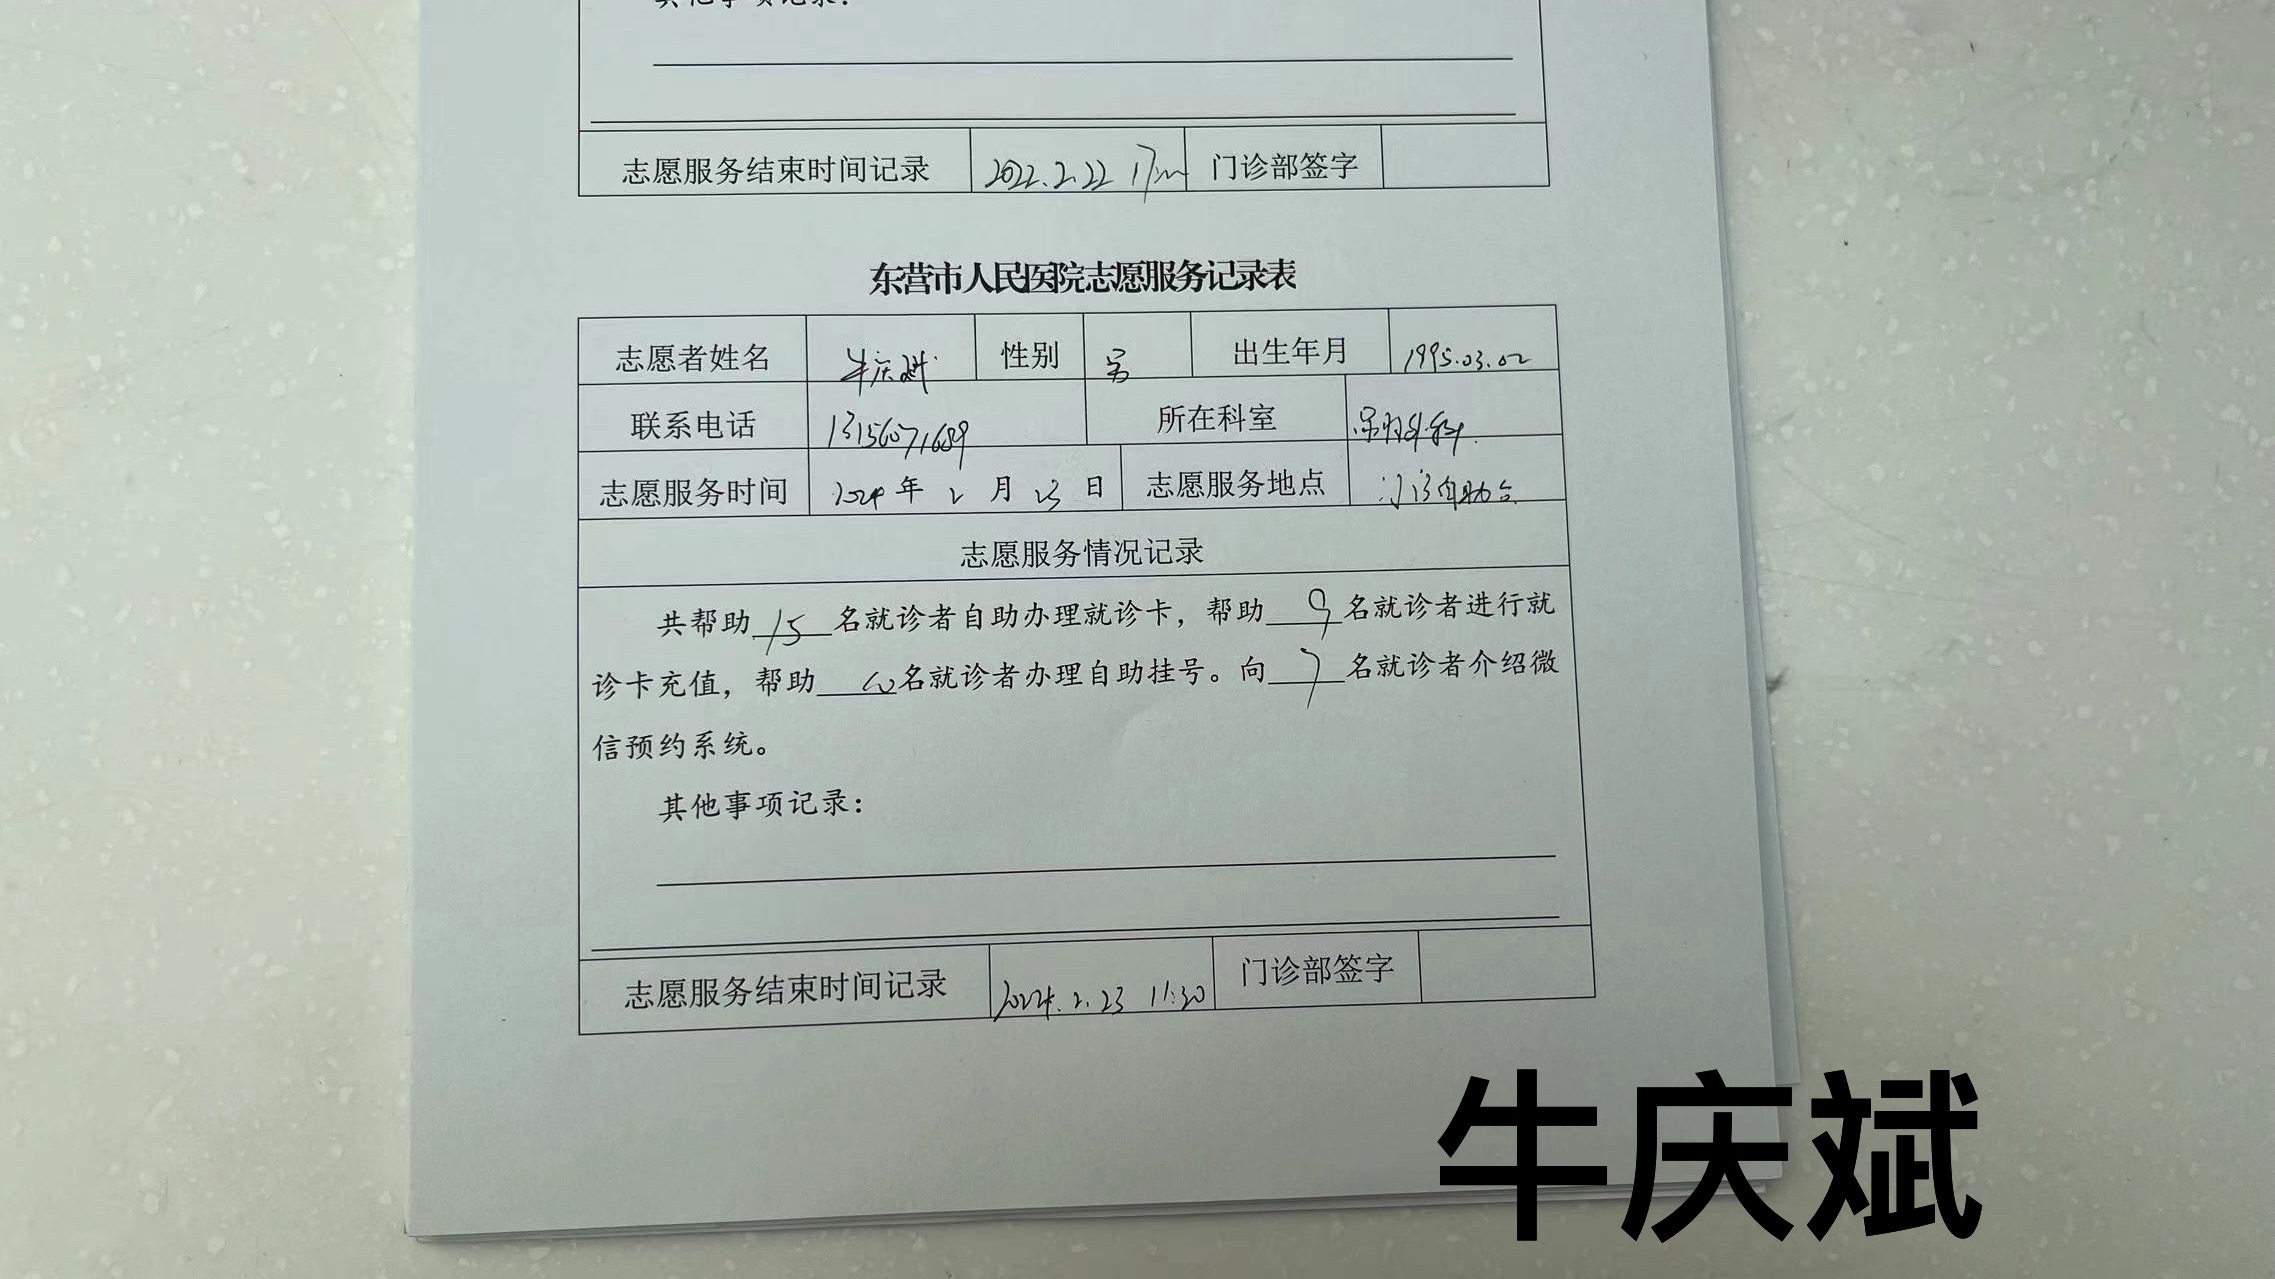 其他事项记录：
志愿服务结束时间记录 2022.2.22 17:00 门诊部签字
东营市人民医院志愿服务记录表
志愿者姓名 牛庆斌 性别 男 出生年月 1995.03.02
联系电话 13156071689 所在科室 泌尿外科
志愿服务时间 2024年2月23日 志愿服务地点 门诊自助台
志愿服务情况记录
共帮助15名就诊者自助办理就诊卡，帮助9名就诊者进行就
诊卡充值，帮助10名就诊者办理自助挂号。向7名就诊者介绍微
信预约系统。
其他事项记录：
志愿服务结束时间记录 2024.2.23 11:30 门诊部签字
牛庆斌